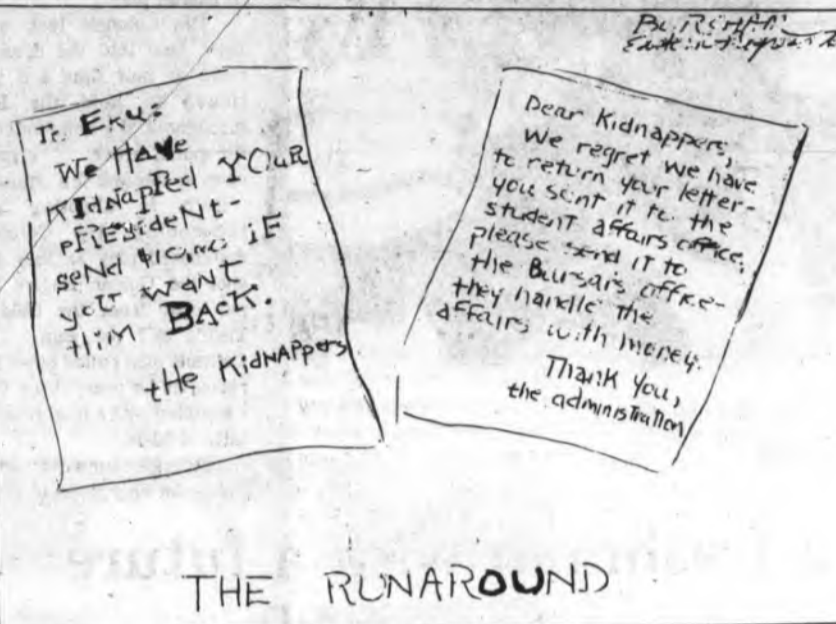 To EKU:
We HAVE
KIdNapped YOUR
pREsideNt-
seNd $10,000 iF
you WANT
Him BACK.
tHe KidNAppers
Dear Kidnappers,
We regret we have
to return your letter-
you sent it to the
student affairs office,
please send it to
the Bursar's office-
they handle the
affairs with money.
Thank You,
the administration
THE RUNAROUND